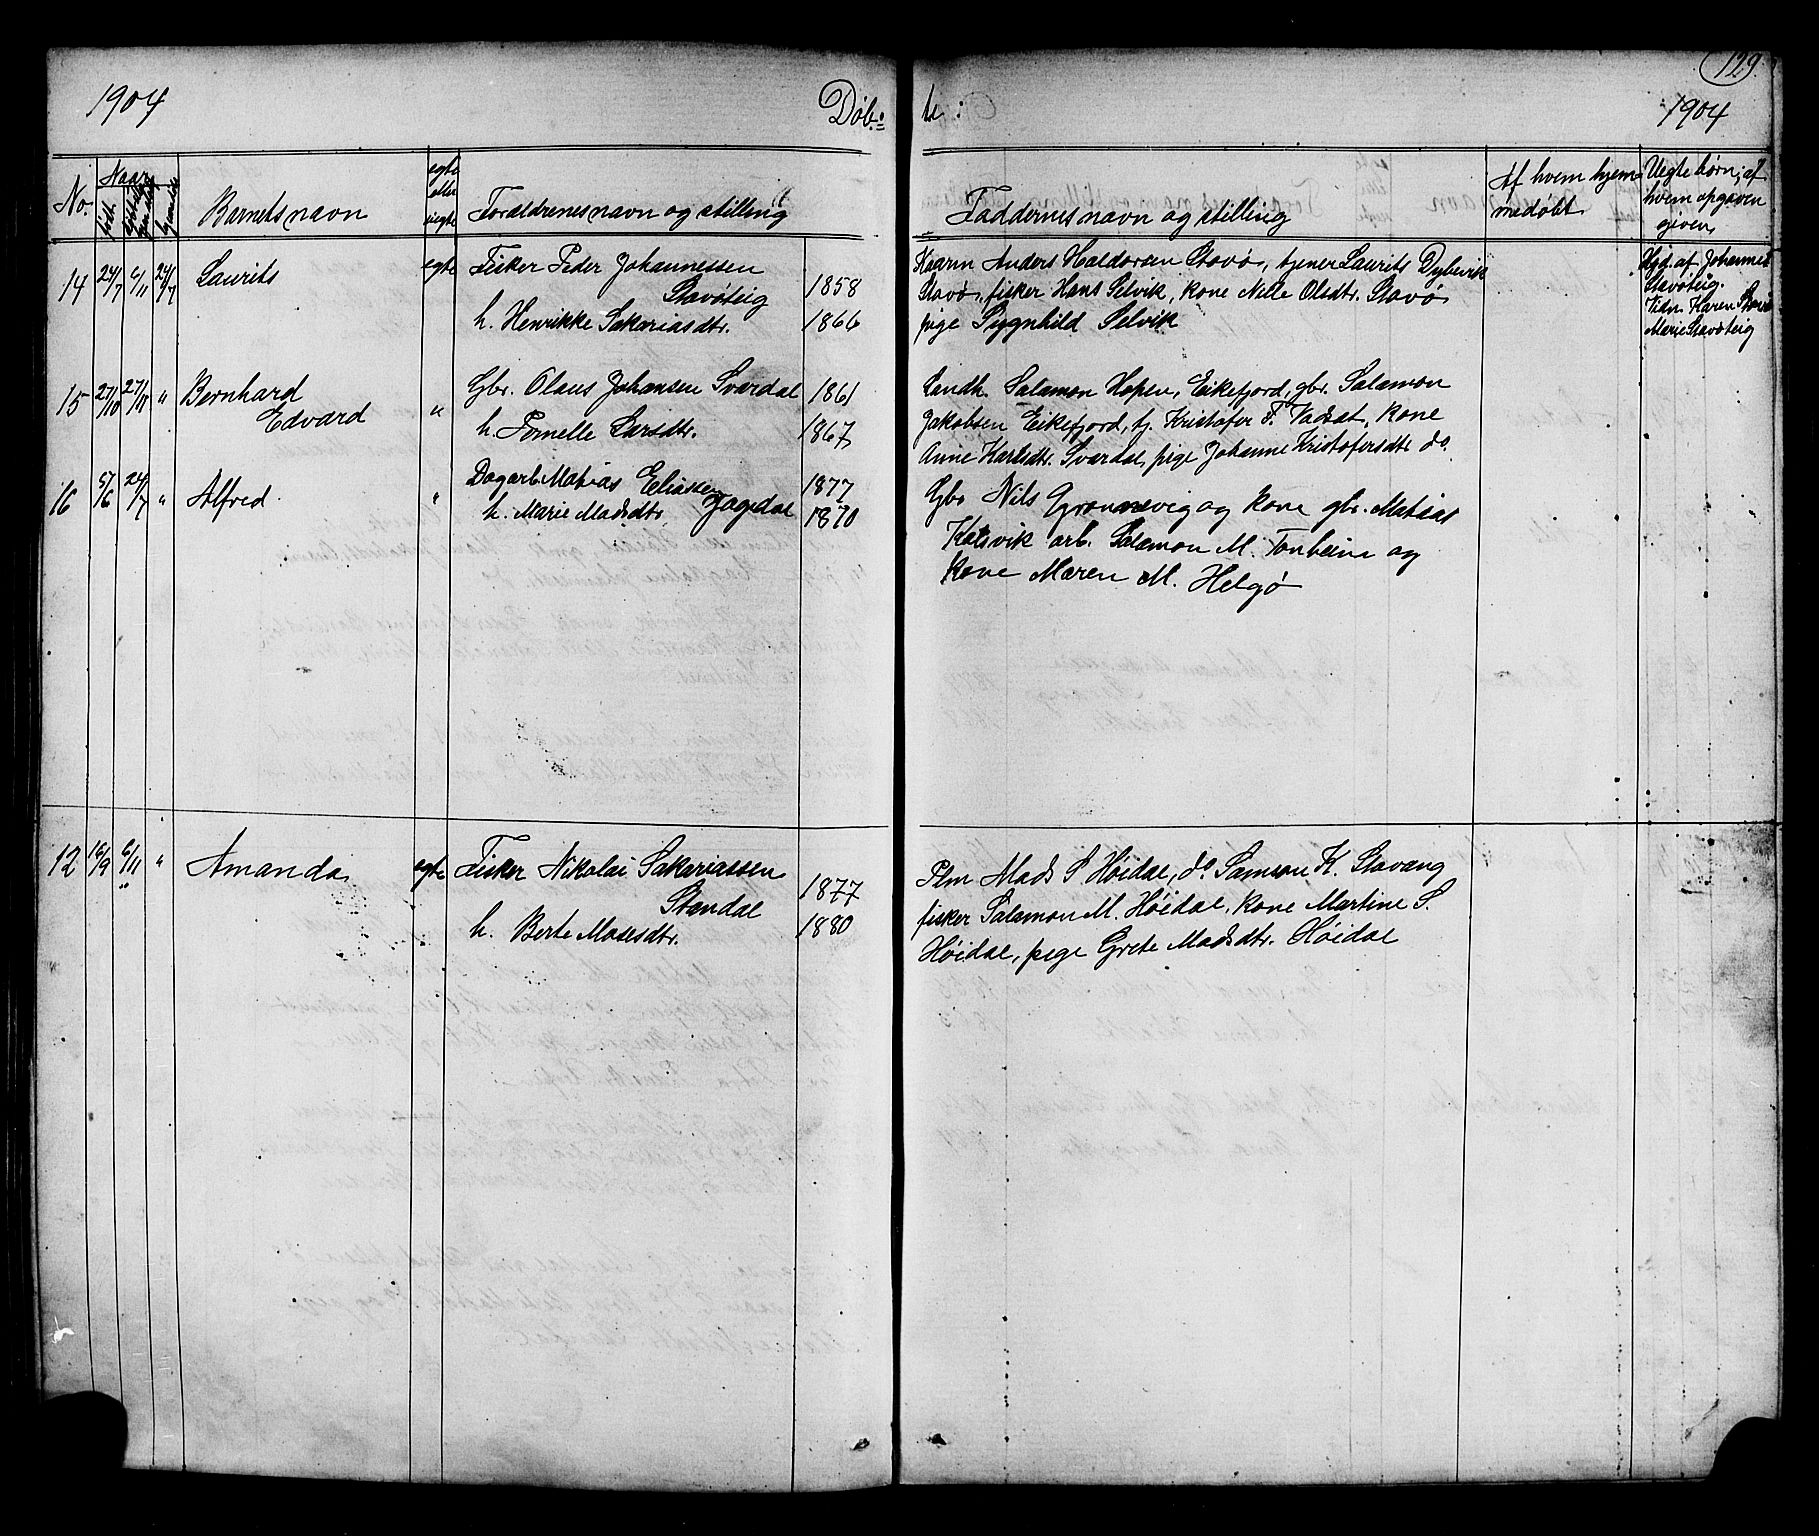 129.
1904
Døb=
te:
1904
No.
Naar
født
hjemdøbt
Barnets navn
egte
eller
uegte
Forældrenes navn og stilling
Faddernes navn og stilling
Af hvem hjem
medøbt
Uegte børn; af
hvem opgaven
given
14 24/7 6/11 24/7 Laurits egte Fisker Peder Johannessen
Stavøteig 1858
h. Henrikke Sakariasdtr. 1866
Kaarm Anders Haldorsen Stavø, tjener Laurits Dybevik
Stavø, fisker Hans Selvik, kone Nille Olsdtr. Stavø
pige Sygnhild Selvik
Hjd. af Johannes
Stavøteig.
Vidn. Karen Stavø
Marie Stavøteig
15 27/10 27/11 " Bernhard " Gbr. Olaus Johansen Svardal 1861
Edvard h. Pernelle Larsdtr. 1867
Landh. Salamon Hopen, Eikefjord, gbr. Salamon
Jakobsen Eikefjord, tj. Kristofer T. Vadset, kone
Anne Karlsdtr. Svardal, pige Johanne Kristofersdtr do.
16 5/6 24/7 " Alfred " Dagarb. Matias Eliassen 1877
h. Marie Madsdtr. Fagedal 1870
Gbr Nils Grønnevig og kone gbr. Matias
Kalsvik arb. Salamon M. Tonheim og
kone Maren M. Helgø
12 16/9 6/11 " Amanda egte Fisker Nikolai Sakariassen
Standal 1877
h. Berte Mosesdtr. 1880
Plm Mads S Høidal, do Samson K. Stavang
fisker Salamon M. Høidal, kone Martine S.
Høidal, pige Grete Madsdtr. Høidal